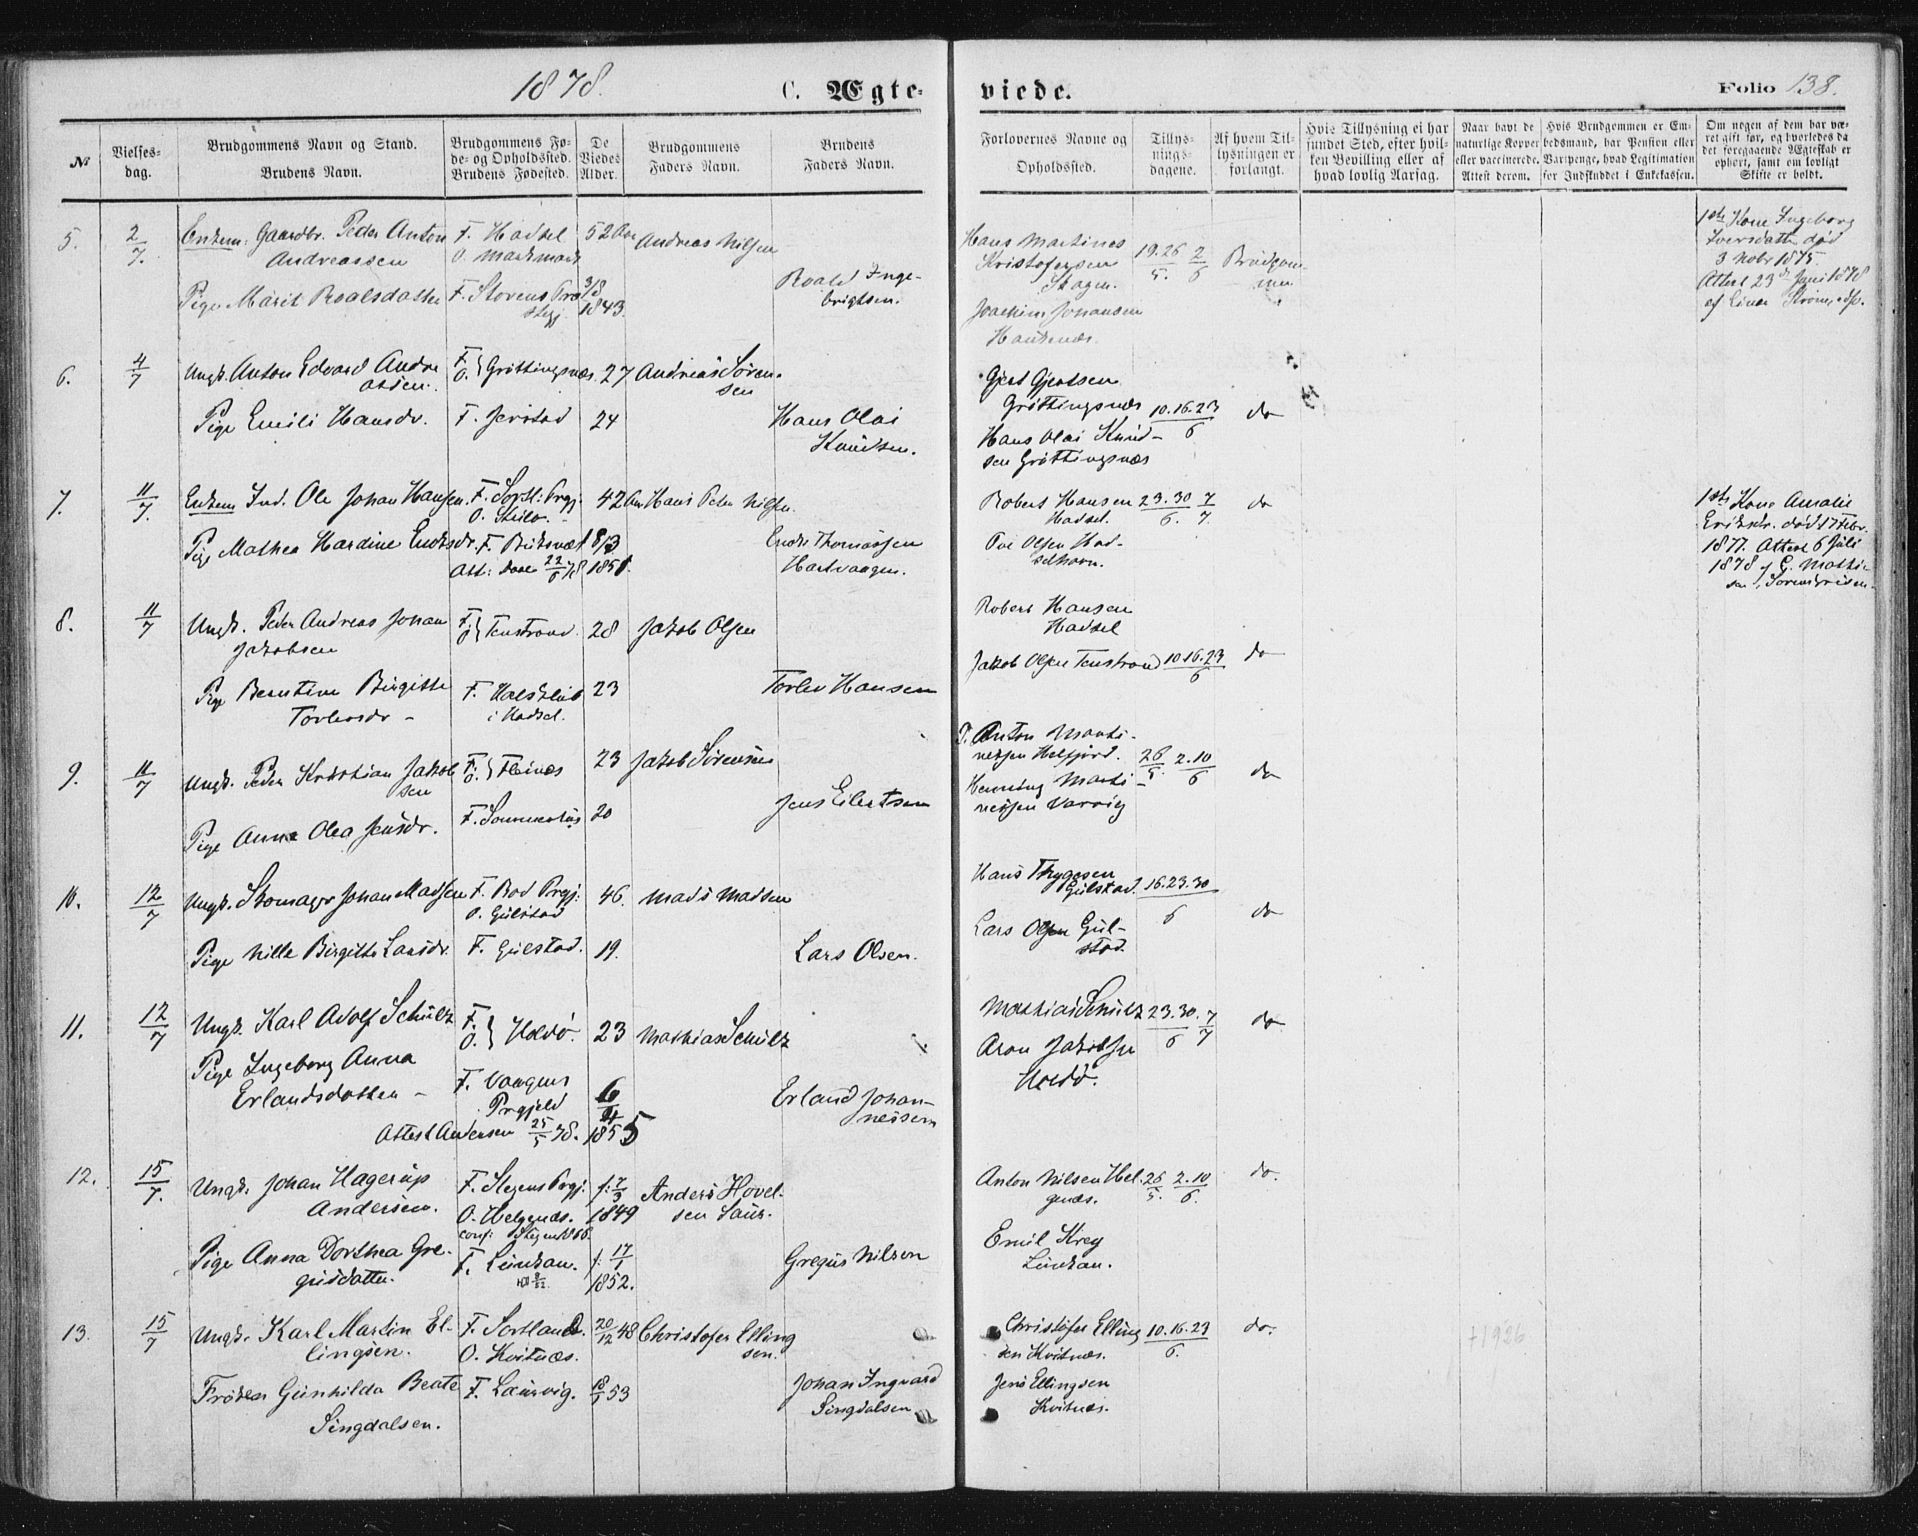 1878.
C. Ægte-
viede.
Folio 138.
№
Vielses-
dag.
Brudgommens Navn og Stand.
Brudens Navn.
Brudgommens Fø-
de- og Opholdssted.
Brudens Fødested.
De
Viedes
Alder.
Brudgommens
Faders Navn.
Brudens
Faders Navn.
Forlovernes Navne og
Opholdssted.
Tillys-
nings-
dagene.
Af hvem Til-
lysningen er
forlangt.
Hvis Tillysning ei har
fundet Sted, efter hvil-
ken Bevilling eller af
hvad lovlig Aarsag.
Naar havt de
naturlige Kopper
eller vaccinerede.
Attest derom.
Hvis Brudgommen er Em-
bedsmand, har Pension eller
Vartpenge, hvad Legitimation
for Indskuddet i Enkekassen.
Om nogen af dem har væ-
ret gift før, og hvorledes da
det foregaaende Ægteskab er
ophørt, samt om lovligt
Skifte er holdt.
5. 2/7. Enkem: Gaardbr. Peder Anton F. Hadsel 52 Aar Andreas Nilsen
Andreassen O.
Pige Marit Roalsdatter F. Stovens 3/8 1843. Roald Inge-
brigtsen.
Hans Martines
Kristofersen 19.26/5. 2/6 Brudgom-
men
Skagen.
Joachim Johansen
1ste Kone Ingeborg
Iversdatter død
3 Nobr 1875.
Attest 23de Juni 1878
af Einar
6. 4/7 Ungk. Anton Edvard Andre F. O. Grøttingsnæs. 27 Andreas Søren-
assen. sen
Pige Emili Hansdr. F. Jerstad 24 Hans Olai
Knudsen.
Gjert Gjertsen
Grøttingsnæs 10.16.23/6 do
Hans Olai Knud-
sen Grøttingsnæs
7. 11/7. Enkem Ind. Ole Johan Hansen. F. Sortl: Prgj. 42 Aar Hans Peter Nilsen.
O.
Pige Mathea Hardine Endresdr. F. 8/3 Endre Thomassen
Att: 22/6 78 1851. Hartvaagen.
Robert Hansen 23.30/6. 7/7. do
Hadsel.
Ole Olsen Had-
selhavn.
1ste Kone Amalie
Eriksdr. død 17 Febr.
1877. Attest 6 Juli
1878 af E. Mathi-
sen,
8. 11/7 Ungk. Peder Andreas Johan F. O. Tenstrand. 28 Jakob Olsen
Jakobsen
Pige Berntine Birgitte F. 23 Torlev Hansen
Torlevsdr - i Hadsel.
Robert Hansen
Hadsel
Jakob Olsen Tenstrand 10.16.23/6 do
9. 11/7 Ungk. Peder Kristian Jakob F. O. Fleines 23 Jakob Sørensen
sen
Pige Anna Olea Jensdr. F. 20 Jens Eilertsen
P. Anton Marti-
nessen Helfjord. 26/5. 2.10/6 do
Henning Marti-
nessen Varvig
10. 12/7 Ungk. Skomager Johan Madsen F. Bod Prgj: 46. Mads Madsen
O. Gulstad
Pige Nille Birgitte Larsdr. F. Gulstad. 19. Lars Olsen.
Hans Thygesen
Gulstad. 16.23.30/6 do
Lars Olsen Gul-
stad.
11. 12/7 Ungk. Karl Adolf Schulz F. O. Hadsø. 23 Mathias Schulz
Pige Ingeborg Anna F. Vaagens 6
Erlandsdatter - Prgjeld Erland Johan-
nessen
Attest Andersen 25/5 78. 1855
Mathias Schulz 23.30/6 7/7 do
Aron Jakobsen
12. 15/7. Ungk. Johan Hagerup F. Stegens Prgj: f: 7/3 Anders Hovel-
Andersen. O. Helgenæs. 1849 sen Saur.
conf: Stegen 1866.
Pige Anna Dorthea Gre- F. Lunkan. f: 17/1 Gregus Nilsen
gusdatter. 1852.
Anton Nilsen Hel- 26/5. 2.10/6. do.
genæs.
Emil Krey
Lunkan.
13. 15/7 Ungk. Karl Martin El- F. Sortland. 20/12 48 Christofer Elling
lingsen. O. Kvitnæs. sen.
Frøken Gunhilda Beate F. Laurvig. 18/5 53 Johan Ingvard
Singdalsen. Singdalsen
Christofer Elling 10.16.23/6. do.
sen Kvitnæs.
Jens Ellingsen
Kvitnæs.
+1926